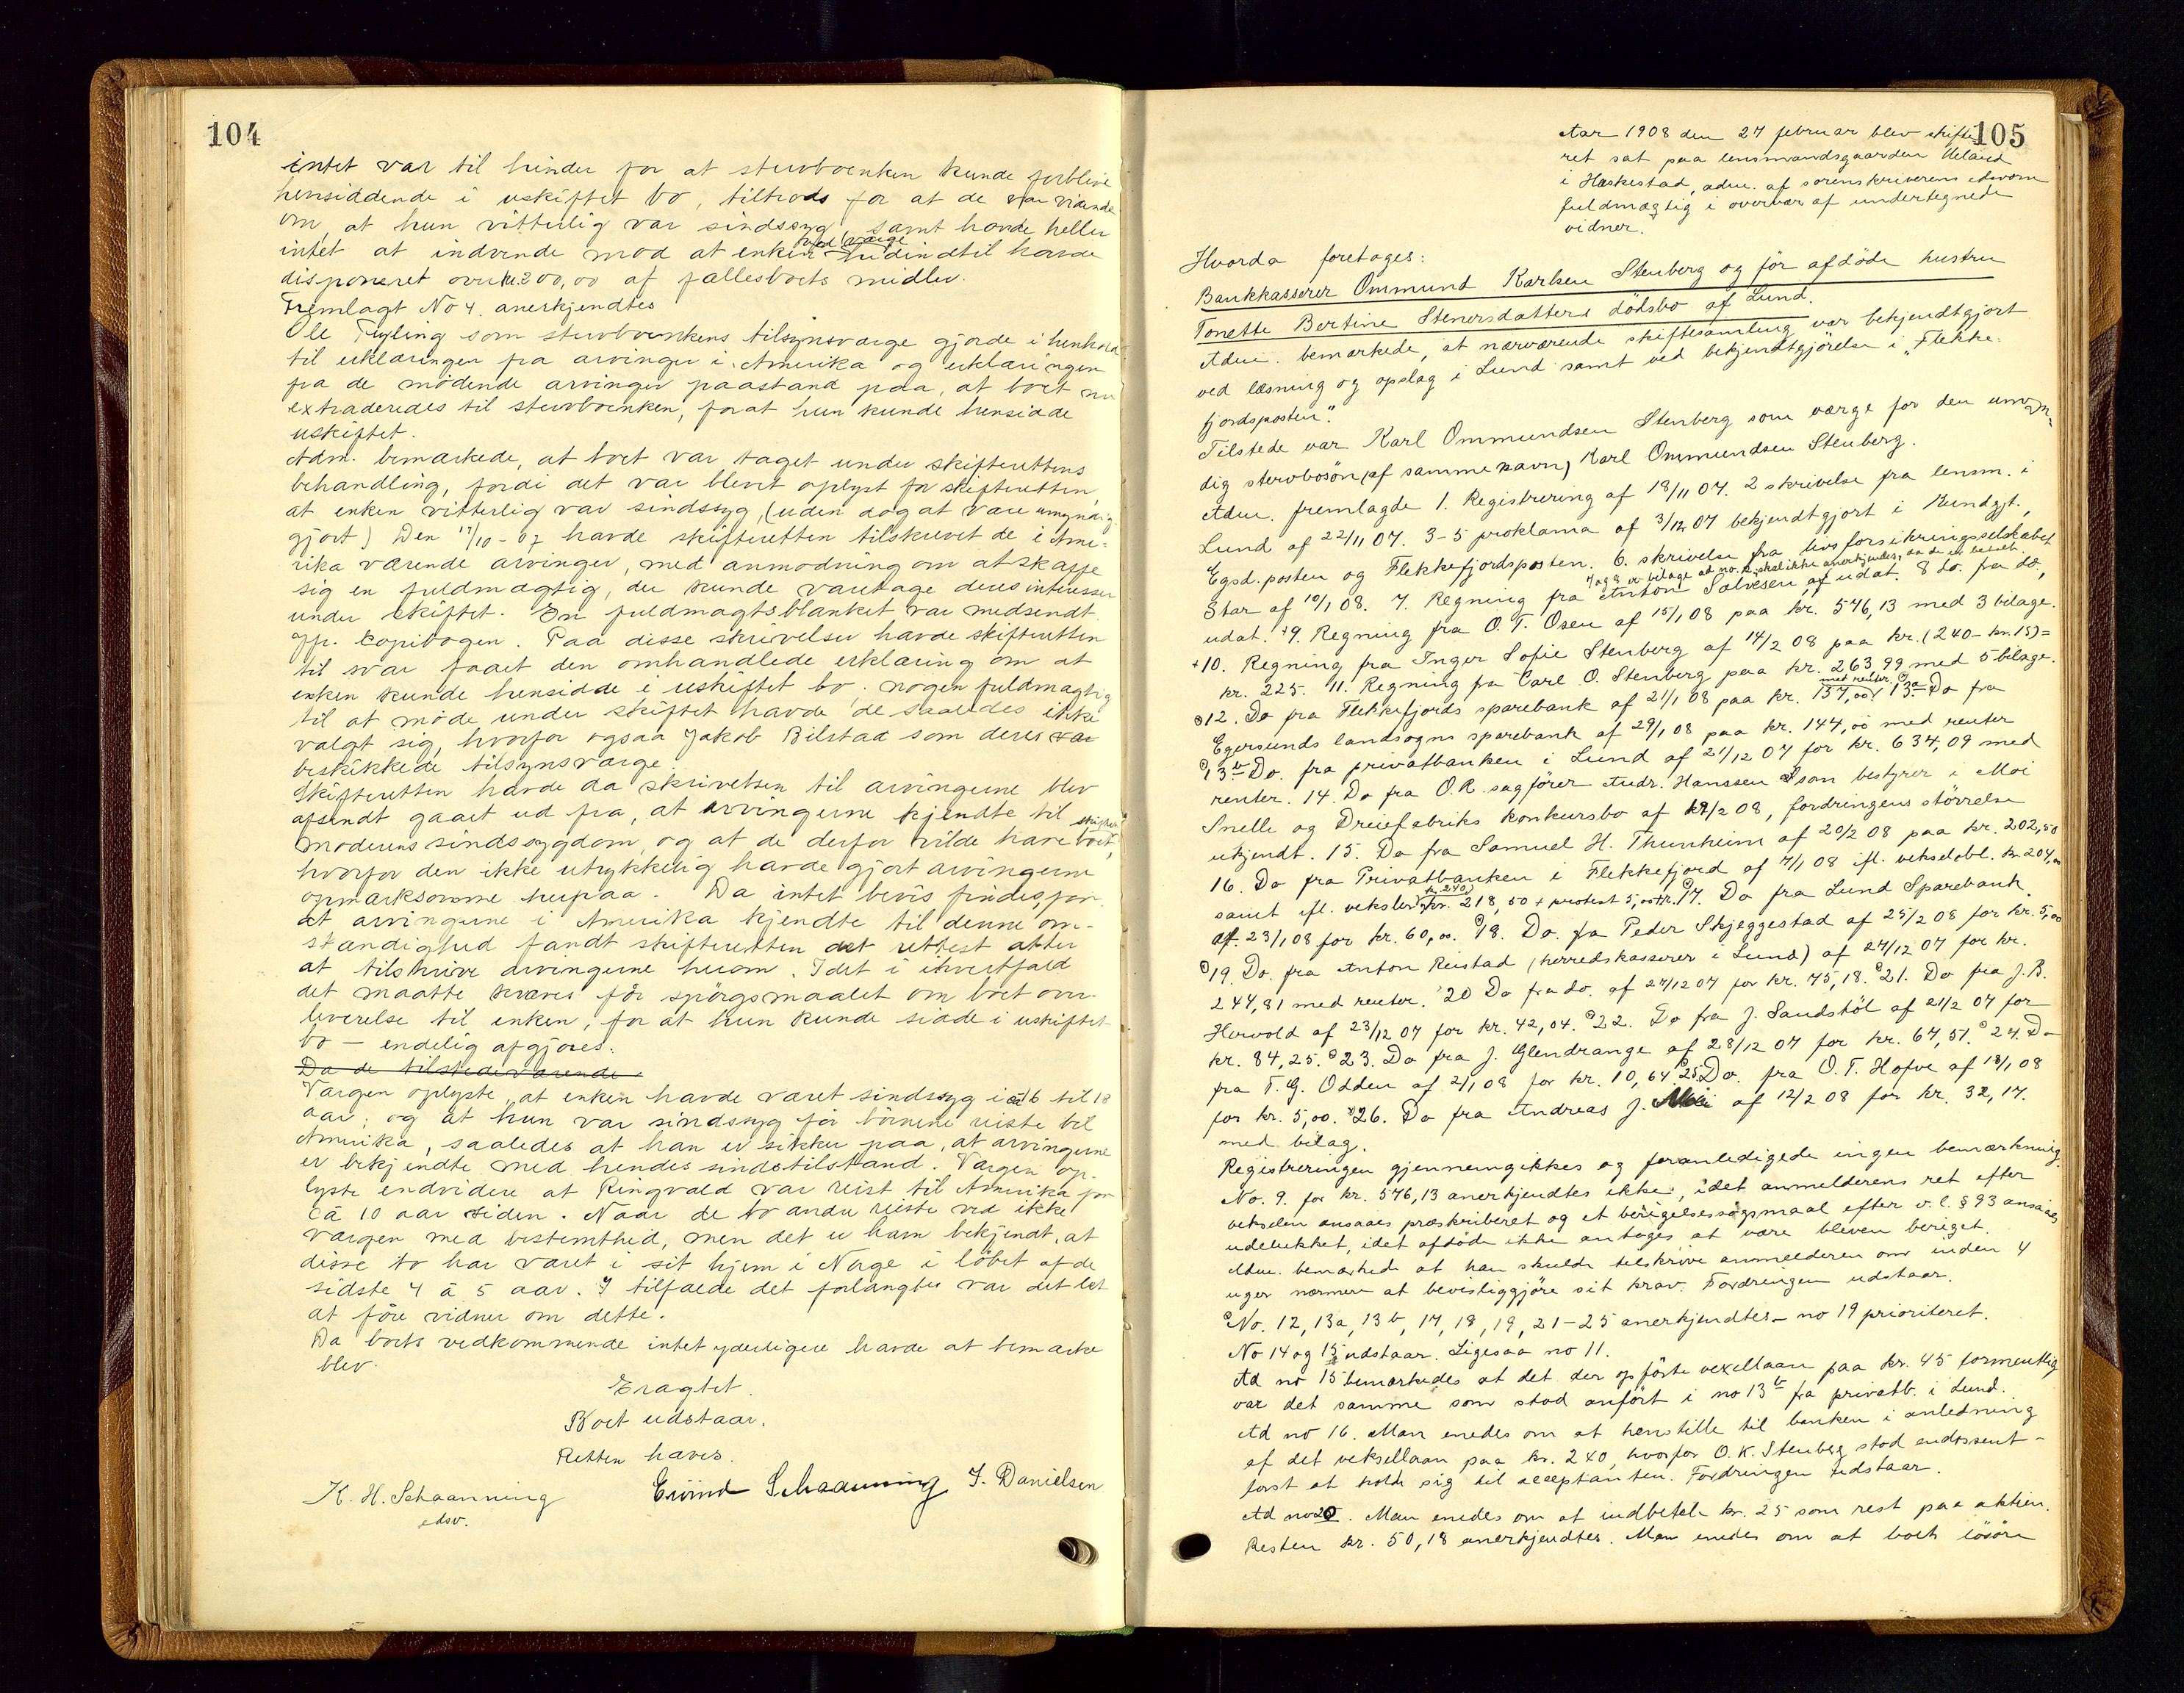 104
intet var til hinder for at stervboenken kunde forblive
hensiddende i uskiftet bo, tiltrods for at de var vidende
om, at hun vitterlig var sindssyg, samt havde heller
intet at indvende mod at enken ved værge hidindtil havde
disponeret over kr. 200,00 af fællesboets midler.
Fremlagt No 4. anerkjendtes
Ole Tryling som stervboenkens tilsynsværge gjorde i henhold
til erklæringer fra arvinger i Amerika og erklæringen
fra de mødende arvinger paastand paa, at boet nu
extraderedes til stervboenken, forat hun kunde hensidde
uskiftet.
Adm. bemærkede, at boet var taget under skifterettens
behandling, fordi det var blevet oplyst for skifteretten,
at enken vitterlig var sindssyg, (uden dog at være umyndig-
gjort) Den 17/10-07 havde skifteretten tilskrevet de i Ame-
rika værende arvinger, med anmodning om at skaffe
sig en fuldmægtig, der kunde varetage deres interesser
under skiftet. En fuldmagtsblanket var medsendt
Jfr. Copibogen. Paa disse skrivelser havde skifteretten
til svar faaet den omhandlede erklæring om at
enken kunde hensidde i uskiftet bo. nogen fuldmægtig
til at møde under skiftet havde de saaledes ikke
valgt sig, hvorfor ogsaa Jakob Bilstad som deres var
beskikkede tilsynsværge.
Skifteretten havde da skrivelsen til arvingerne blev
afsendt gaaet ud fra, at arvingerne kjendte til
moderens sindssygdom, og at de derfor vilde have boet skiftet,
hvorfor den ikke utrykkelig havde gjort arvingerne
opmærksomme herpaa. Da intet bevis findes for
at arvingerne i Amerika kjendte til denne om-
stændighed fandt skifteretten det rettest atter
at tilskrive arvingerne herom. Idet i ethvertfald
det maatte kræves før spørgsmaalet om boet over-
leverelse til enken, for at hun kunde sidde i uskiftet
bo — endelig afgjøres.
Da de tilstedeværende
Værgen oplyste, at enken havde været sindssyg i ca 16 til 18
aar, og at hun var sindssyg før børnene reiste til
Amerika, saaledes at han er sikker paa, at arvingerne
er bekjendte med hendes sindstilstand. Værgen op-
lyste endvidere at Ringvald var reist til Amerika for
ca 10 aar siden. Naar de to andre reiste ved ikke
værgen med bestemthed, men det er ham bekjendt, at
disse to har været i sit hjem i Norge i løbet af de
sidste 4 à 5 aar. I tilfælde det forlangtes var det let
at føre vidner om dette.
Da boets vedkommende intet yderligere havde at bemærke
blev
Eragtet.
Boet udstaar.
Retten hævet.
K. H. Schaanning Eivind Schaanning J. Danielsen
edsv.
105
Aar 1908 den 27 februar blev skifte-
ret sat paa lensmandsgaarden Ueland
i Heskestad, adm. af sorenskriverens edsvorne
fuldmægtig i overvær af undertegnede
vidner.
Hvorda foretages:
Bankkasserer Ommund Karlsen Stenberg og før afdøde hustru
Tonette Bertine Stenersdatters dødsbo af Lund.
Adm. bemærkede, at nærværende skiftesamling var bekjendtgjort
ved læsning og opslag i Lund samt ved bekjendtgjørelse i „Flekke-
fjordsposten“.
Tilstede var Karl Ommundsen Stenberg som værge for den umyn-
dig stervbosøn, (af samme navn) Karl Ommundsen Stenberg.
Adm. fremlagde 1. Registrering af 18/11 07. 2 skrivelse fra lensm. i
Lund af 22/11 07. 3-5 proklama af 3/12 07 bekjendtgjort i Kundgjt.,
Egsd.posten og Flekkefjordsposten. 6. skrivelse fra livsforsikringsselskabet
7 og 8 er bilage at no. 9. skal ikke anerkjendes, da de er betalt.
Star af 10/1 08. 7. Regning fra Anton Salvesen, af udat. 8 do. fra do.,
udat. +9. Regning fra O. T. Osen af 15/1 08 paa kr. 576,13 med 3 bilage.
+10. Regning fra Inger Sofie Stenberg af 14/2 08 paa kr. (240-kr. 15)=
kr. 225. 11. Regning fra Carl O. Stenberg paa kr. 263,99 med 5 bilage.
12. Do fra Flekkefjords sparebank af 21/1 08 paa kr. 157,00 met renter. 13a Do fra
Egersunds landsogns sparebank af 29/1 08 paa kr. 144,00 med renter
13b Do. fra privatbanken i Lund af 21/12 07 for kr. 634,09 med
renter. 14. Do fra O.R. sagfører Andr. Hanssen som bestyrer i Moi
Snelle og Dreiefabriks konkursbo af 19/2 08, fordringens størrelse
ukjendt. 15. Do fra Samuel H. Thunheim af 20/2 08 paa kr. 202,50
16. Do fra Privatbanken i Flekkefjord af 7/1 08 ifl. vekselobl. kr 204,00
samt ifl. veksler (kr. 240) kr. 218,50 + protest 5,00 kr. 17. Do fra Lund Sparebank
af 23/1 08 for kr. 60,00. 18. Do. fra Peder Skjeggestad af 25/2 08 for kr. 5,00
19. Do. fra Anton Reistad (herredskasserer i Lund) af 27/12 07 for kr.
247,81 med renter. 20 Do fra do. af 27/12 07 for kr. 75,18. 21. Do fra J. B.
Hervold af 23/12 07 for kr. 42,04. 22. Do fra J. Sandstøl af 21/2 07 for
kr. 84,25. 23. Do fra J. Glendrange af 28/12 07 for kr. 67,51. 24. Do
fra T. G. Odden af 2/1 08 for kr. 10,64. 25. Do. fra O. T. Hofve af 18/1 08
for kr. 5,00. 26. Do fra Andreas J. Moi af 12/2 08 for kr. 32,17.
med bilag.
Registreringen gjennemgikkes og foranledigede ingen bemærkning.
No. 9. for kr. 576,13 anerkjendtes ikke, idet anmelderens ret efter
vekselen ansaaes præskriberet og et berigelsessøgsmaal efter v. l. § 93 ansaaes
udelukket, idet afdøde ikke antoges at være bleven beriget.
Adm. bemærkede at han skulde tilskrive anmelderen om inden 4
uger nærmere at bevisliggjøre sit krav. Fordringen udstaar.
No. 12, 13a, 13b, 17, 18, 19, 21-25 anerkjendtes – no 19 prioriteret.
No 14 og 15 udstaar. Ligesaa no 11.
Ad no 15 bemærkedes at det der opførte vexellaan paa kr. 45 formentlig
var det samme som stod anført i no 13b fra privatb. i Lund.
Ad no 16. Man enedes om at henstille til banken i anledning
af det veksellaan paa kr. 240, hvorfor O. K. Stenberg stod endossent –
først at holde sig til acceptanten. Fordringen udstaar.
Ad no 20. Man enedes om at indbetale kr. 25 som rest paa aktien.
Resten kr. 50,18 anerkjendtes. Man enedes om at boets løsøre